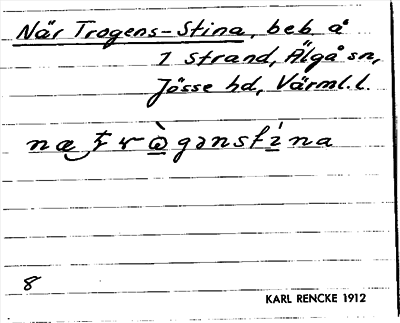 När Trogens-Stina, beb. å
1 strand, Älgå sn,
Jösse hd, Värml. l.
8
KARL RENCKE 1912